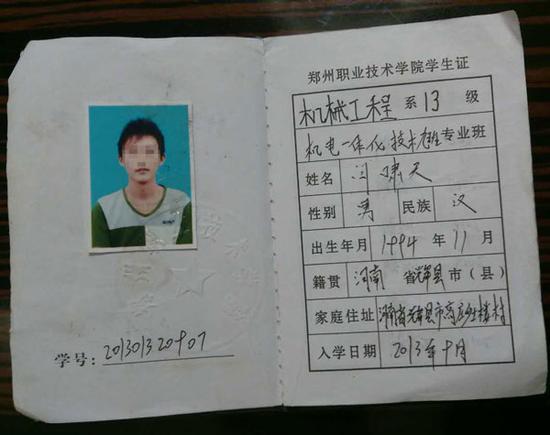 学号: 201301320907
郑州职业技术学院学生证
机械工程 系 13 级
机电一体化技术 专业 班
姓名 闫啸天
性别 男 民族 汉
出生年月 1994 年 11 月
籍贯 河南 省辉县市(县)
家庭住址 河南省辉县市 楼村
入学日期 2013年9月